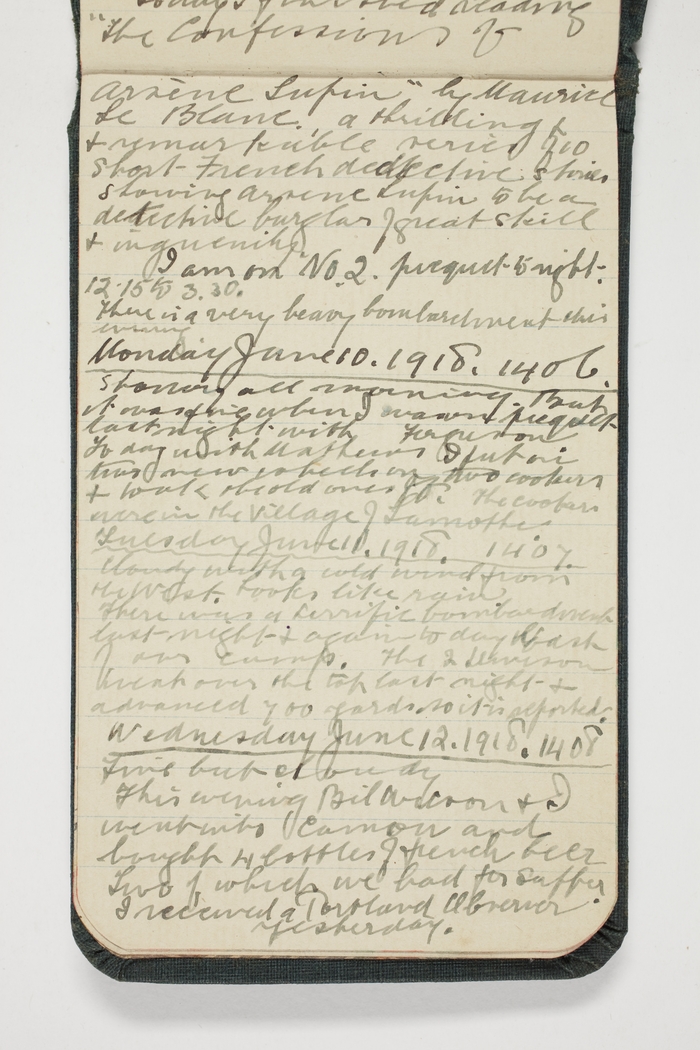 "The Confessions of
Arsène Lupin" by Maurice
Le Blanc. a thrilling
& remarkable series of 10
short French detective stories
showing Arsene Lupin to be a
detective burglar of great skill
& inguenity
I am on No. 2. picquet to night.
12.15 to 3.30.
There is a very heavy bombardment this
evening
Monday June 10. 1918. 1406.
Showery all morning. But
it was fine when I was on picquet
last night with Ferguson
To day with Mathews I put on
two new wheels on two cookers
& took the old ones off. The cookers
were in the Village of Lamotte
Tuesday June 11. 1918. 1407.
Cloudy with a cold wind from
the West. Looks like rain
There was a terrific bombardment
last night & again to day back
of our camp. The 2 Division
went over the top last night &
advanced 700 yards so it is reported.
Wednesday June 12. 1918. 1408
Fine but cloudy
This evening Bill Wilson & I
went into Camon and
bought 4 bottles of French beer
Two of which we had for supper.
I received a Portland Observer
yesterday.